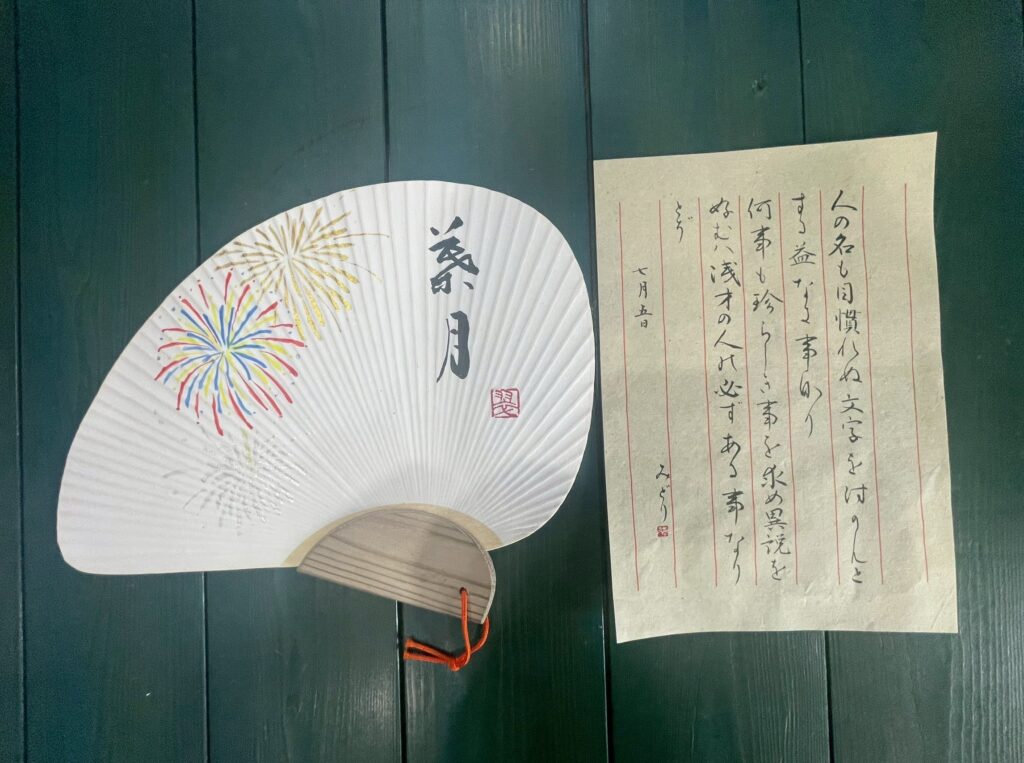 葉月
翠
人の名も目慣れぬ文字を付かんと
する益なき事なり
何事も珍らしき事を求め異説を
好むハ浅才の人の必ずある事なり
とぞ
七月五日
みどり